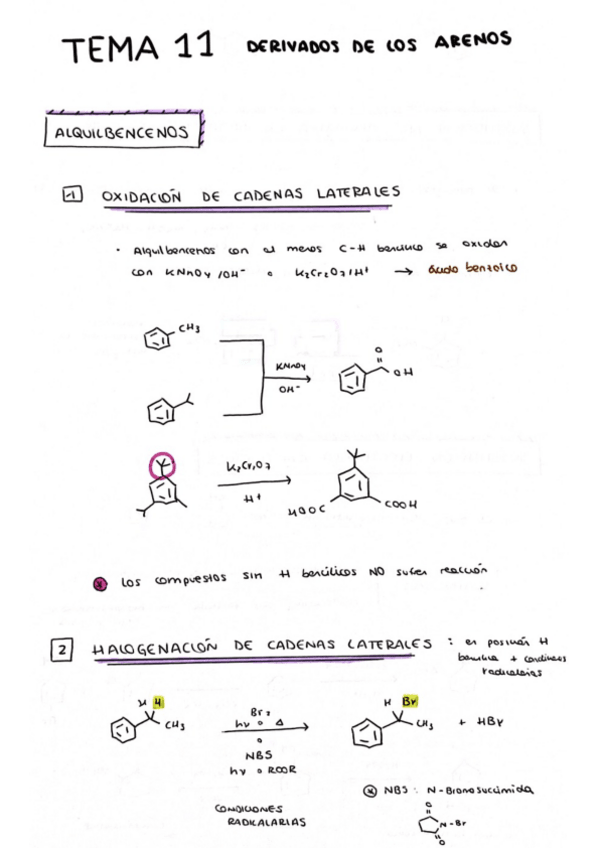 TEMA 11 DERIVADOS DE LOS ARENOS
ALQUILBENCENOS
1 OXIDACIÓN DE CADENAS LATERALES
· Alquilbencenos con al menos C-H bencílico se oxidan
con KMnO4 /OH- o K2Cr2O7/H+ → ácido benzoico
CH3
KMnO4
OH-
O
OH
K2Cr2O7
H+
HOOC
COOH
* Los compuestos sin H bencílicos NO sufren reacción
2 HALOGENACIÓN DE CADENAS LATERALES : en posición H
bencílica + condiciones
radicalarias
H H
CH3
Br2
hν o Δ
o
NBS
hν o ROOR
CONDICIONES
RADICALARIAS
H Br
CH3
+ HBr
* NBS: N-Bromosuccimida
O
N-Br
O